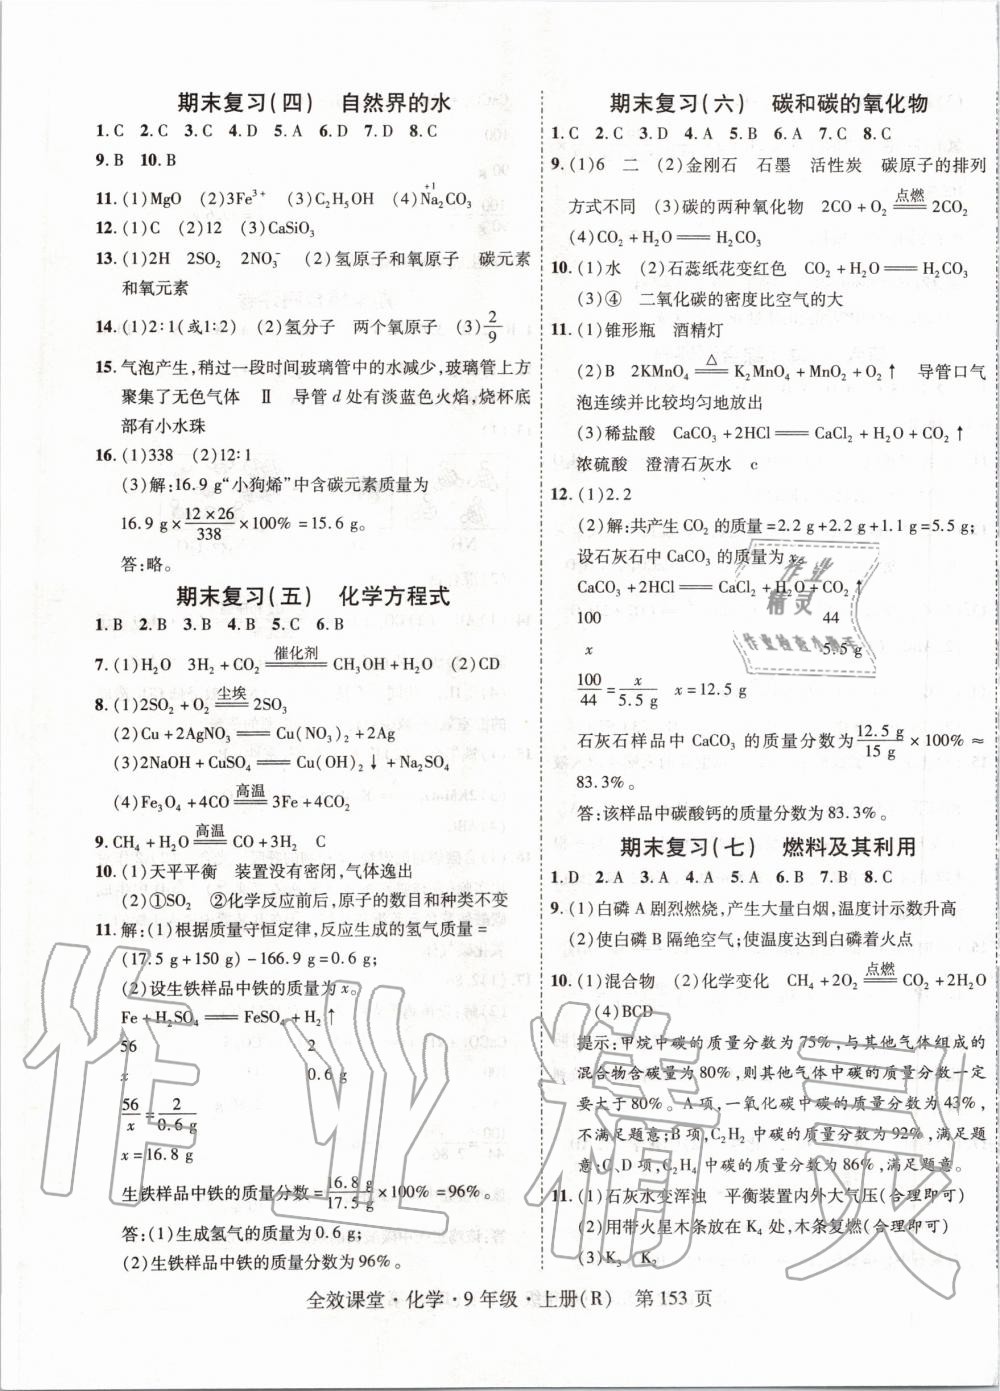 期末复习(四)　自然界的水
1. C　2. C　3. C　4. D　5. A　6. D　7. D　8. C
9. B　10. B
11. (1)MgO　(2)3Fe³⁺　(3)C₂H₅OH　(4)N⁺¹a₂CO₃
12. (1)C　(2)12　(3)CaSiO₃
13. (1)2H　2SO₂　2NO₃⁻　(2)氢原子和氧原子　碳元素
和氧元素
14. (1)2∶1(或1∶2)　(2)氢分子　两个氧原子　(3)2/9
15. 气泡产生,稍过一段时间玻璃管中的水减少,玻璃管上方
聚集了无色气体　Ⅱ　导管 d 处有淡蓝色火焰,烧杯底
部有小水珠
16. (1)338　(2)12∶1
(3)解:16.9 g“小狗烯”中含碳元素质量为
16.9 g×12×26/338×100%=15.6 g。
答:略。
期末复习(五)　化学方程式
1. B　2. B　3. B　4. B　5. C　6. B
7. (1)H₂O　3H₂+CO₂ 催化剂══ CH₃OH+H₂O　(2)CD
8. (1)2SO₂+O₂ 尘埃══ 2SO₃
(2)Cu+2AgNO₃══Cu(NO₃)₂+2Ag
(3)2NaOH+CuSO₄══Cu(OH)₂↓+Na₂SO₄
(4)Fe₃O₄+4CO 高温══ 3Fe+4CO₂
9. CH₄+H₂O 高温══ CO+3H₂　C
10. (1)天平平衡　装置没有密闭,气体逸出
(2)①SO₂　②化学反应前后,原子的数目和种类不变
11. 解:(1)根据质量守恒定律,反应生成的氢气质量=
(17.5 g+150 g)-166.9 g=0.6 g;
(2)设生铁样品中铁的质量为 x。
Fe+H₂SO₄══FeSO₄+H₂↑
56　2
x　0.6 g
56/x=2/0.6 g
x=16.8 g
生铁样品中铁的质量分数=16.8 g/17.5 g×100%=96%。
答:(1)生成氢气的质量为0.6 g;
(2)生铁样品中铁的质量分数为96%。
期末复习(六)　碳和碳的氧化物
1. C　2. C　3. D　4. A　5. B　6. A　7. C　8. C
9. (1)6　二　(2)金刚石　石墨　活性炭　碳原子的排列
方式不同　(3)碳的两种氧化物　2CO+O₂ 点燃══ 2CO₂
(4)CO₂+H₂O══H₂CO₃
10. (1)水　(2)石蕊纸花变红色　CO₂+H₂O══H₂CO₃
(3)④　二氧化碳的密度比空气的大
11. (1)锥形瓶　酒精灯
(2)B　2KMnO₄ △══ K₂MnO₄+MnO₂+O₂↑　导管口气
泡连续并比较均匀地放出
(3)稀盐酸　CaCO₃+2HCl══CaCl₂+H₂O+CO₂↑
浓硫酸　澄清石灰水　c
12. (1)2.2
(2)解:共产生 CO₂ 的质量=2.2 g+2.2 g+1.1 g=5.5 g;
设石灰石中 CaCO₃ 的质量为 x。
CaCO₃+2HCl══CaCl₂+H₂O+CO₂↑
100　44
x　5.5 g
100/44=x/5.5 g　x=12.5 g
石灰石样品中 CaCO₃ 的质量分数为12.5 g/15 g×100%≈
83.3%。
答:该样品中碳酸钙的质量分数为83.3%。
期末复习(七)　燃料及其利用
1. D　2. A　3. A　4. A　5. A　6. B　7. B　8. C
9. (1)白磷 A 剧烈燃烧,产生大量白烟,温度计示数升高
(2)使白磷 B 隔绝空气;使温度达到白磷着火点
10. (1)混合物　(2)化学变化　CH₄+2O₂ 点燃══ CO₂+2H₂O
(4)BCD
提示:甲烷中碳的质量分数为75%,与其他气体组成的
混合物含碳量为80%,则其他气体中碳的质量分数一定
要大于80%。A 项,一氧化碳中碳的质量分数为43%,
不满足题意;B 项,C₂H₂ 中碳的质量分数为92%,满足题
意;C、D 项,C₂H₄ 中碳的质量分数为86%,满足题意。
11. (1)石灰水变浑浊　平衡装置内外大气压(合理即可)
(2)用带火星木条放在 K₄ 处,木条复燃(合理即可)
(3)K₃　K₂
全效课堂·化学·9年级·上册(R)　第153页
作业精灵
作业
精灵
作业检查小帮手